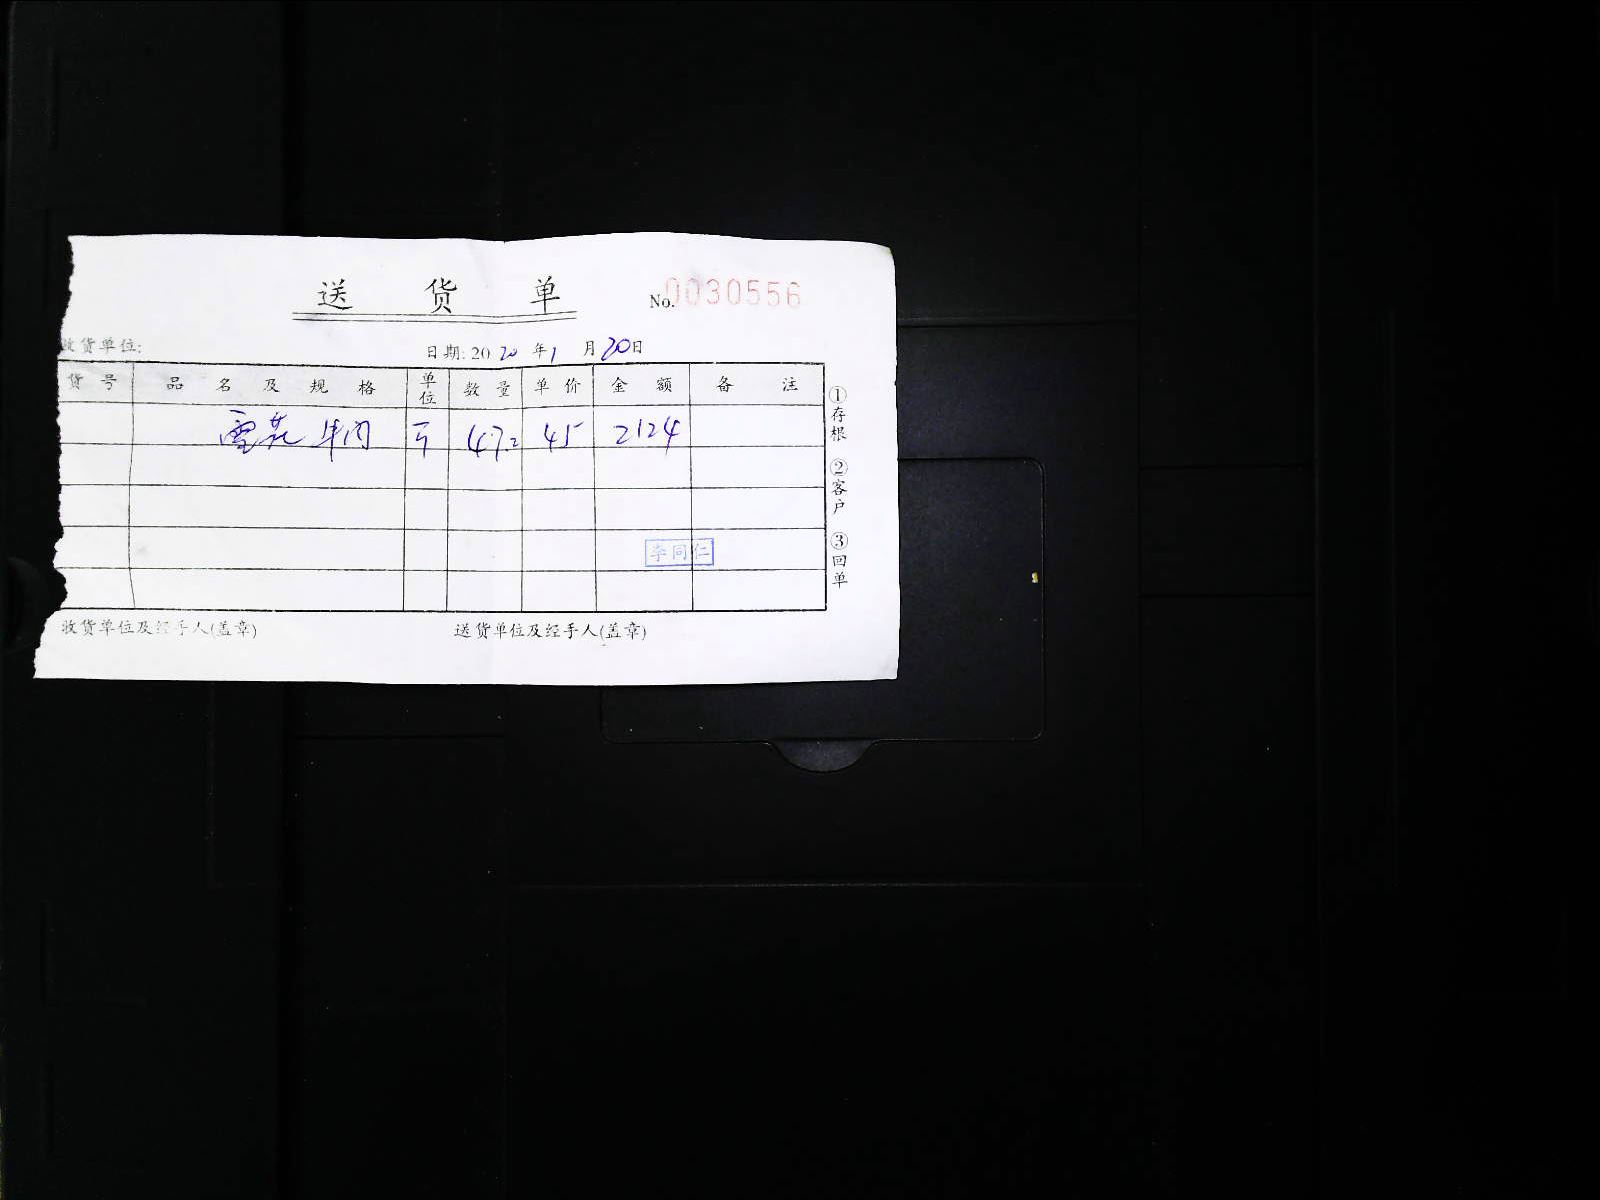 送货单 No.0030556
收货单位: 日期: 2020年1月20日
货号 品名及规格 单位 数量 单价 金额 备注
雪花牛肉 斤 47.2 45 2124
李同仁
收货单位及经手人(盖章) 送货单位及经手人(盖章)
①存根 ②客户 ③回单